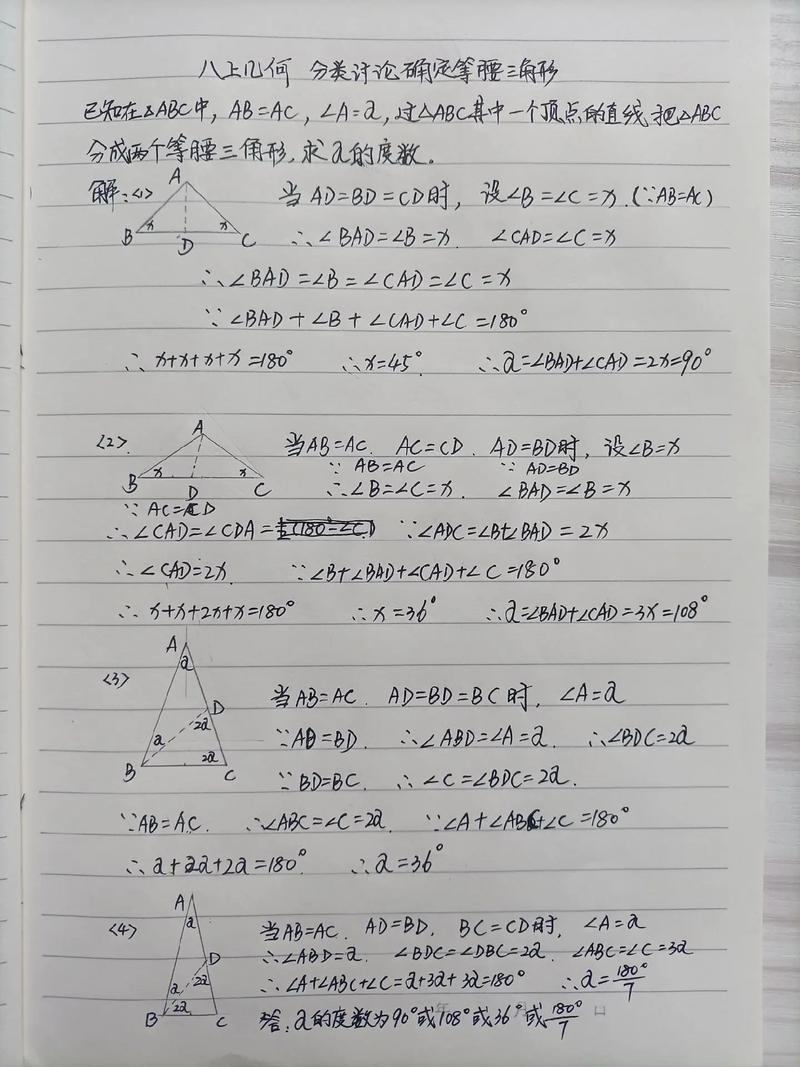 八上几何 分类讨论确定等腰三角形
已知在△ABC中, AB=AC, ∠A=a, 过△ABC其中一个顶点的直线把△ABC
分成两个等腰三角形, 求a的度数。
解:<1> A B D C x x 当AD=BD=CD时, 设∠B=∠C=x.(∵AB=AC)
∴∠BAD=∠B=x. ∠CAD=∠C=x
∴∠BAD=∠B=∠CAD=∠C=x
∵∠BAD+∠B+∠CAD+∠C=180°
∴x+x+x+x=180° ∴x=45°. ∴a=∠BAD+∠CAD=2x=90°
<2>. A B D C x x 当AB=AC. AC=CD. AD=BD时, 设∠B=x
∵AB=AC ∵AD=BD
∴∠B=∠C=x. ∠BAD=∠B=x
∵AC=CD
∴∠CAD=∠CDA= ∵∠ADC=∠B+∠BAD=2x
∴∠CAD=2x. ∵∠B+∠BAD+∠CAD+∠C=180°
∴x+x+2x+x=180° ∴x=36° ∴a=∠BAD+∠CAD=3x=108°
<3> A a D 2a a 2a B C 当AB=AC. AD=BD=BC时, ∠A=a
∵AD=BD. ∴∠ABD=∠A=a. ∴∠BDC=2a
∵BD=BC. ∴∠C=∠BDC=2a.
∵AB=AC. ∴∠ABC=∠C=2a. ∵∠A+∠ABC+∠C=180°
∴a+2a+2a=180°. ∴a=36°
<4> A a D 2a a 2a B C 当AB=AC. AD=BD. BC=CD时, ∠A=a
∴∠ABD=a. ∠BDC=∠DBC=2a. ∠ABC=∠C=3a
∴∠A+∠ABC+∠C=a+3a+3a=180° ∴a=180°/7
答:a的度数为90°或108°或36°或180°/7